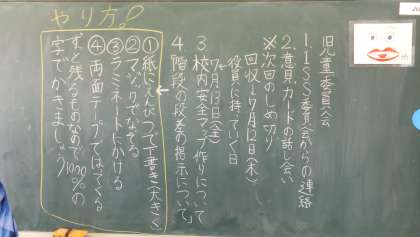 児童委員会
1. ISS委員会からの連絡
2. 意見カードの話し合い
※次回のしめ切り
回収→7月12日(木)
役員に持っていく日
7月13日(金)
3. 校内安全マップ作りについて
4. 階段の段差の掲示について
やり方
①紙にえんぴつで下書き(大きく)
②マジックでなぞる
③ラミネートにかける
④両面テープではってくる
ずっと残るものなので100%の
字でかきましょう